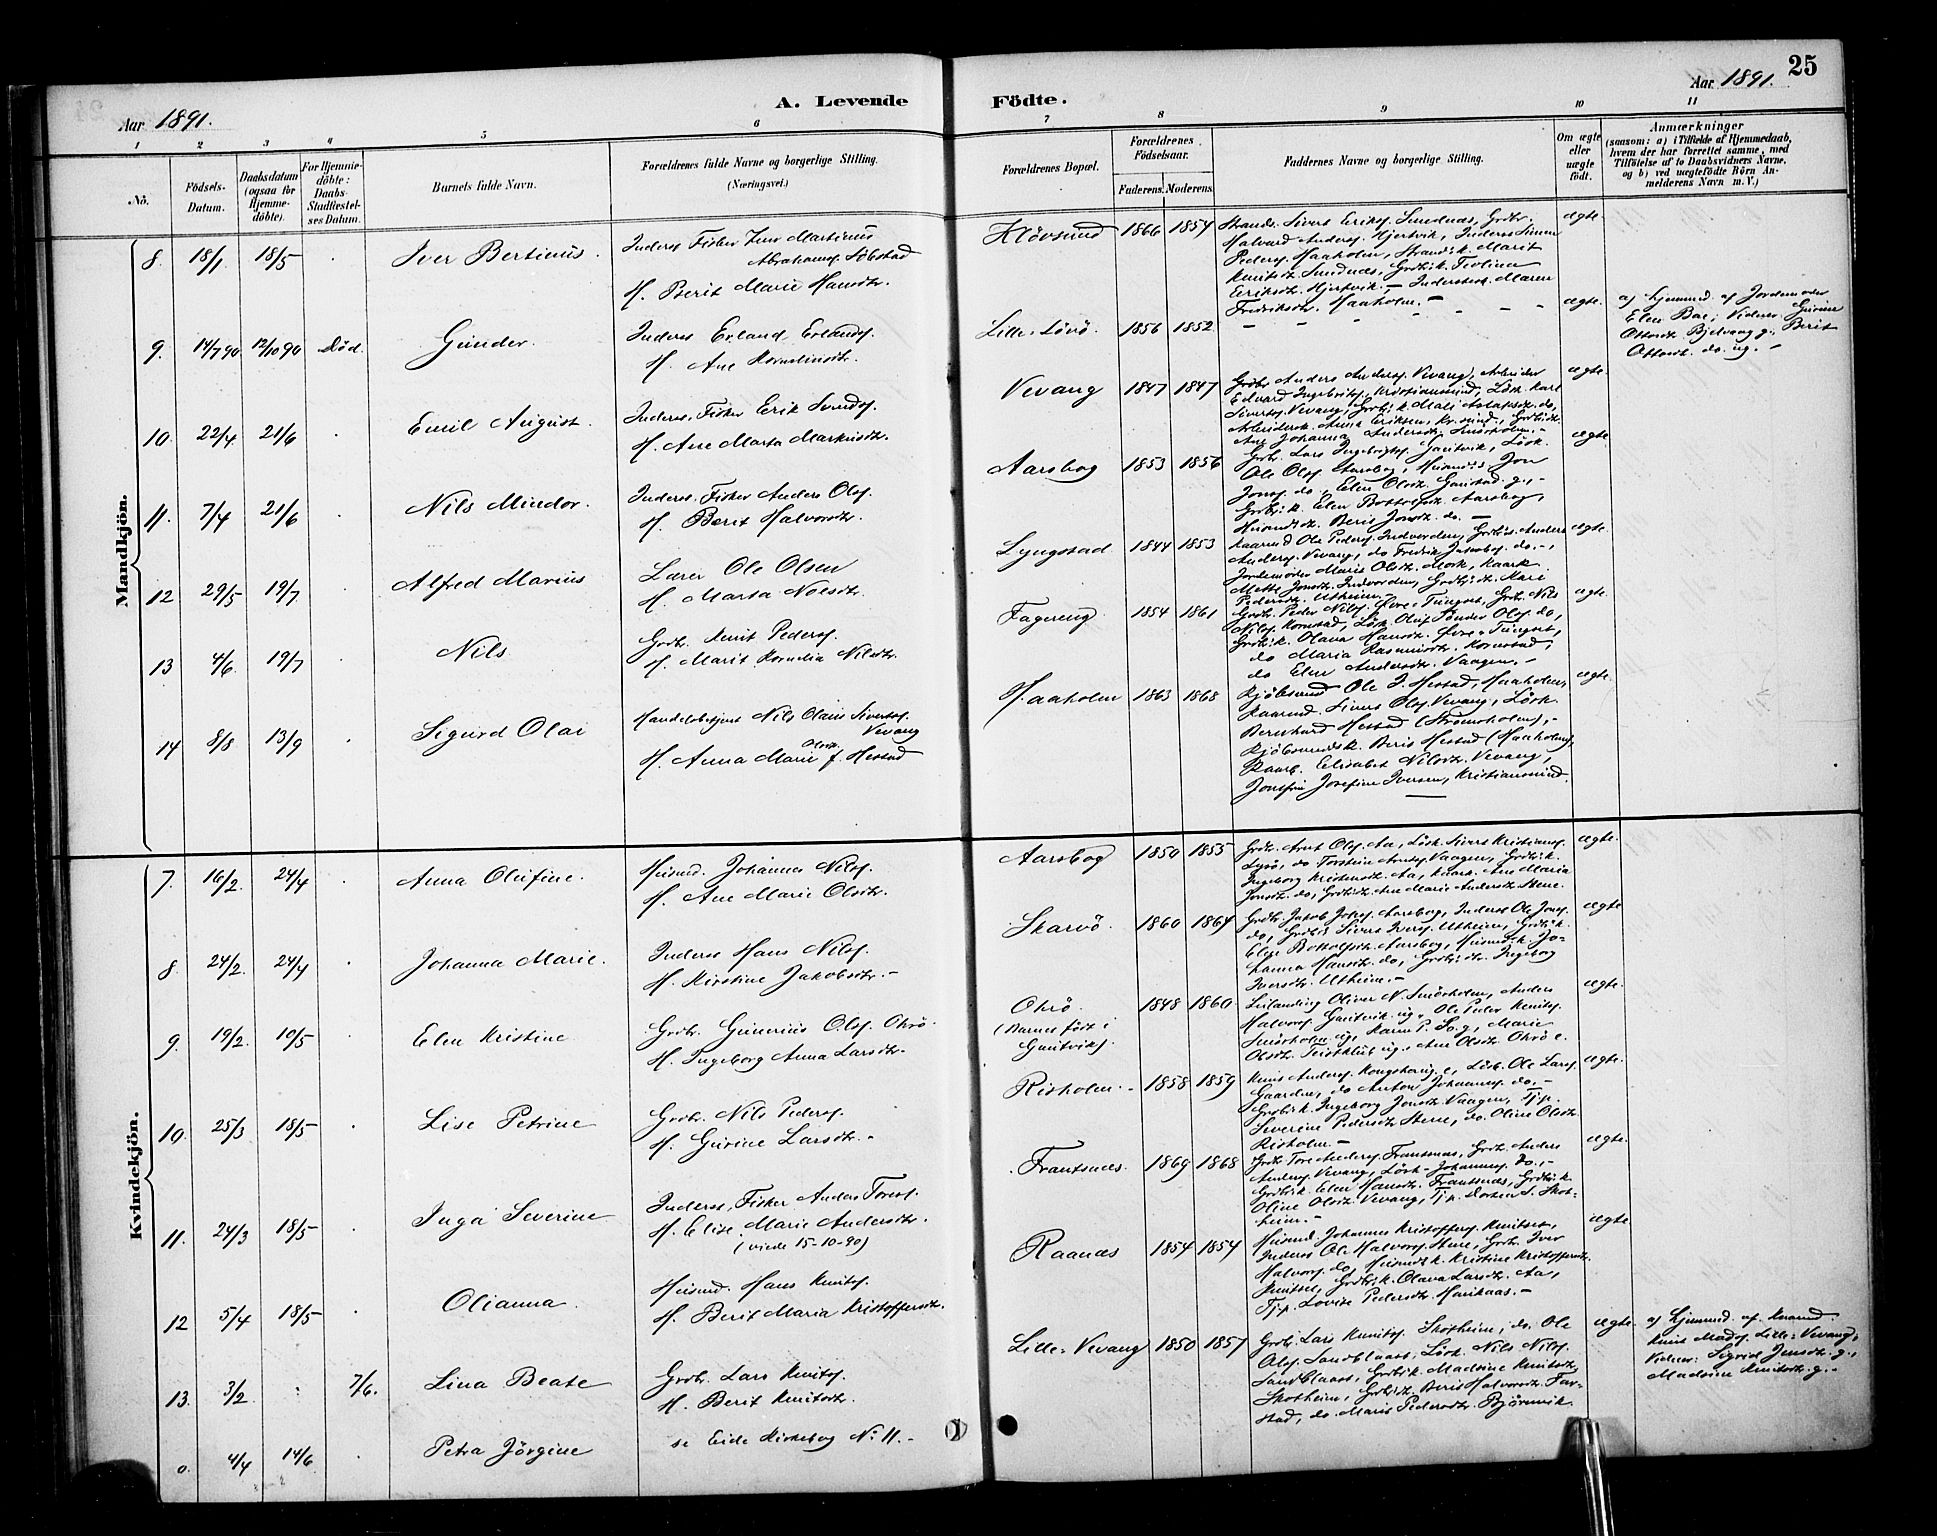 25
Aar 1891.
A. Levende
Födte.
Aar 1891.
1 2 3 4 5 6 7 8 9 10 11
Nö.
Födsels-Datum.
Daabsdatum (ogsaa for Hjemmedöbte).
For Hjemmedöbte: Daabs-Stadfæstelses Datum.
Barnets fulde Navn.
Forældrenes fulde Navne og borgerlige Stilling.
(Næringsvei.)
Forældrenes Bopæl.
Forældrenes Födselsaar.
Faderens. Moderens.
Faddernes Navne og borgerlige Stilling.
Om ægte eller uægte födt.
Anmærkninger
(saasom: a) i Tilfælde af Hjemmedaab, hvem der har forrettet samme, med Tilföielse af to Daabsvidners Navne, og b) ved uægtefödte Börn Anmelderens Navn m. V.)
Mandkjön.
8. 18/1 18/5 Iver Bertinus.
Inderst Fisker Jens Martinus
Abrahams. Sölstad
H. Berit Marie Hansdtr.
Klövsund 1866 1854
Strands. Sivert Eriks. Smednæs, Grdbr.
Halvard Anders. Hjertvik, Inderst Simon
Peders. Haaholm, Strands.k. Marit
Knutsdt. Smednæs, Grdb.k. Teoline
Eriksdt. Hjertvik. - Inderstenk. Maren
Fredriksdt. Haaholm. -
ægte.
9. 14/7 90 12/10 90 död. Gunder.
Inderst Erland Erlands.
H. Ane Korneliusdtr.
Lille-Lövö. 1856 1852
ægte.
a) hjemmed. af Jordemoder
Elen Bae; Vidner: Gurine
Ottersdt. Bjelvang g., Berit
Ottersdt. do. ug. -
10. 22/4 21/6 Emil August.
Inderst, Fisker Erik Svends.
H. Ane Marta Markusdtr.
Vevang 1847 1847
Grdbr. Anders Anders. Vevang, Arbeider
Edvard Ingebrigts. Kristiansund, Lösk. Karl
Siverts. Vevang, Grdb.k. Mali Aslaksdt. do,
Arbeidersk. Anna Eriksen, Kr.sund, Grdb.dt.
Ane Johanna Andersdt. Smörholm. -
ægte.
11. 7/4 21/6 Nils Mindor.
Inderst. Fisker Anders Ols.
H. Berit Halvorsdtr.
Aarsbog 1853 1856
Grdb. Lars Ingebrigts. Gautvik, Lösk.
Ole Ols. Aarsbog, Husmds. Jon
Jons. do, Elen Olsdt. Gaustad g., -
Grdb.k. Elen Bottolfsdt. Aarsbog,
Husmdsdt. Beris Jonsdt. do. -
ægte
12 29/5 19/7 Alfred Marius
Lærer Ole Olsen
H. Marta Nilsdt.
Lyngstad 1844 1853
Kaarmd Ole Peders. Indvorden, Grdb.s. Anders
Anders. Vevang, do Fredrik Jakobs. do. -,
Jordemoder Maris Olsdt. Mork, Kaark.
Mette Jonsdt. Indvorden, Grdb.dt. Kari
Pedersdt. Utheim.
ægte.
13 4/6 19/7 Nils
Grdbr. Knut Peders.
H. Marit Kornelia Nilsdtr.
Fagereng 1854 1861
Grdb. Peder Nils. Övre-Tungst, Grdb. Nils
Nils. Kornstad, Lösk. Oluf Sönder Ols. do,
Grdb.k. Olava Hansdt. Övre-Tungst,
do Maria Rasmusdt. Kornstad,
do Elen Andersdt. Vaagen. -
ægte.
14 8/8 13/9 Sigurd Olai
Handelsbetjent Nils Olaus Siverts.
Vevang
H. Anna Marie Olsdt. f. Hestad
Haaholm 1863 1868
Kjöbmand Ole J. Hestad, Haaholm,
Kaarmd. Sivert Ols. Vevang, Lösk.
Bernhard Hestad (Strömsholm), -
Kjöbmandsk. Beris Hestad (Haaholm),
Kaark. Elisabet Nilsdt. Vevang,
Jomfru Josefine Iversen, Kristiansund.
ægte.
Kvindekjön.
7. 16/2 24/4 Anna Olufine.
Husmd. Johannes Nils.
H. Ane Marie Olsdtr.
Aarsbog 1850 1855
Grdb. Arnt Ols. Aa, Lösk. Sivert Kristians.
Lysö, do Torstein Arnts. Vaagen, Grdb.k.
Ingeborg Kristensdt. Aa, Kaark. Ane Maria
Jonsdt. do, Grdb.dt. Ane Marie Andersdt. Stene.
ægte.
8. 24/2. 24/4 Johanna Marie.
Inderst Hans Nils.
H. Kirstine Jakobsdtr. -
Skarvö. 1860 1864
Grdbr. Jakob Johs. Aarsbog, Inderst Ole Jons.
do, Grdb.s Sivert Ivers. Utheim, Grdb.k.
Elen Bottolfsdt. Aarsbog, Husmd.k. Jo-
hanna Hansdt. do, Grdb.dt. Ingeborg
Iversdt. Utheim. -
ægte
9. 19/2. 10/5 Elen Kristine
Grdbr. Gunerius Ols. Ohrö.
H. Ingeborg Anna Larsdtr.
Ohrö. 1848 1860.
(Barnet födt i
Gautvik).
Leilænding Oliver N. Smörholm, Anders
Halvors. Gautvik ug. Ole Peder Knuts.
Smörholm ug, Karen P. So. g, Marie
Olsdt. Teistklub ug., Ane Olsdt. Ohrö e.
ægte.
10. 25/3 18/5 Lise Petrine
Grdbr. Nils Peders.
H. Gurine Larsdtr. -
Risholm. - 1858 1859
Knut Anders. Kongshaug e, Lösk. Ole Lars.
Gaarden, do Anton Johannes. do. -
Grdb.k. Ingeborg Jonsdt. Vaagen, Tjp.
Severine Pedersdt. Stene, do. Oline Olsdt.
Risholm. -
ægte.
11. 24/3 18/5 Inga Severine
Inderst, Fisker Anders Tores.
H. Elise Marie Andersdtr.
(viede 15-10-90)
Frantsnæs. 1869 1868
Grdb. Tore Anders. Frantsnæs, Grdb. Anders
Anders. Vevang, Lösk. Johannes. do., -
Grdb.k. Elen Hansdt. Frantsnæs, Grdb.k.
Oline Olsdt. Vevang, Tjp. Dorten S. Skot-
heim. -
ægte.
12 5/4 18/5 Olianna.
Husmd. Hans Knuts.
H. Berit Maria Kristoffersdtr.
Raanæs 1854 1854
Husmd. Johannes Kristoffers. Knutset,
Inderst Ole Halvors. Stene, Grdb. Iver
Halvors. do, Husmdsk. Kristine Kristoffersdt.
Knutset, Grdb.k. Olava Larsdt. Aa,
Tjp. Lovise Pedersdt. Haukaas. -
ægte
13. 3/2 7/6. Lina Beate
Grdbr. Lars Knuts.
H. Berit Knutsdtr.
Lille-Vevang 1850 1857
Grdb. Lars Knuts. Skotheim, do. Ole
Ols. Sandblaast, Lösk. Nils Nils.
Sandblaast, Grdb.k. Madsine Knutsdt.
Skotheim, Grdb.dt. Beris Halvorsdt. Far-
stad, do. Maris Pedersdt. Björnvik
ægte.
a) hjemmed. af Kaarmd.
Knut Mads. Lille-Vevang.
Vidner: Sigrid Jensdt. g.,
Madsine Knutsdt. g. -
0. 4/4 14/6 Petra Jörgine
se Eide Kirkebog No 11. -